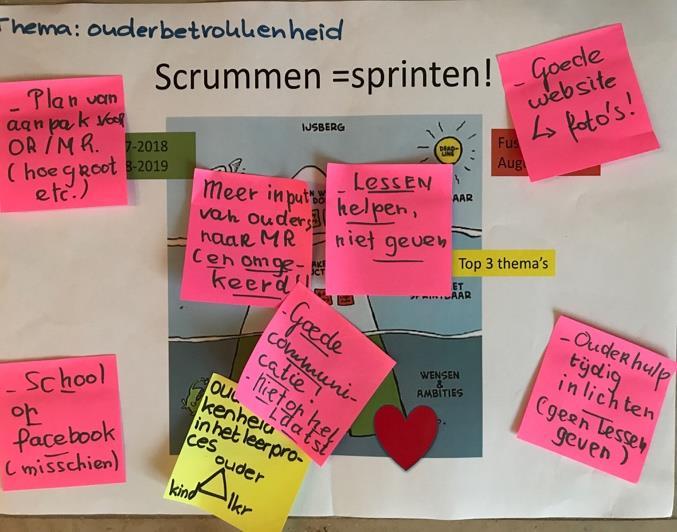 Thema: ouderbetrokkenheid
Scrummen =sprinten!
- Plan van
aanpak voor
OR/MR.
(hoe groot
etc.)
7-2018
8-2019
IJSBERG
DEAD-
LINE
- Goede
website
↳ foto's!
Fus
Aug
Meer input
van ouders
naar MR
(en omge-
keerd!
- LESSEN
helpen,
niet geven
AAR
Top 3 thema's
- Goede
communi-
catie!
- niet op het
laatst
WENSEN
&
AMBITIES
- School
op
facebook
(misschien)
kenheid
in het leerpro-
ces
ouder
kind
lkr
- Ouderhulp
tijdig
inlichten
(geen lessen
geven)